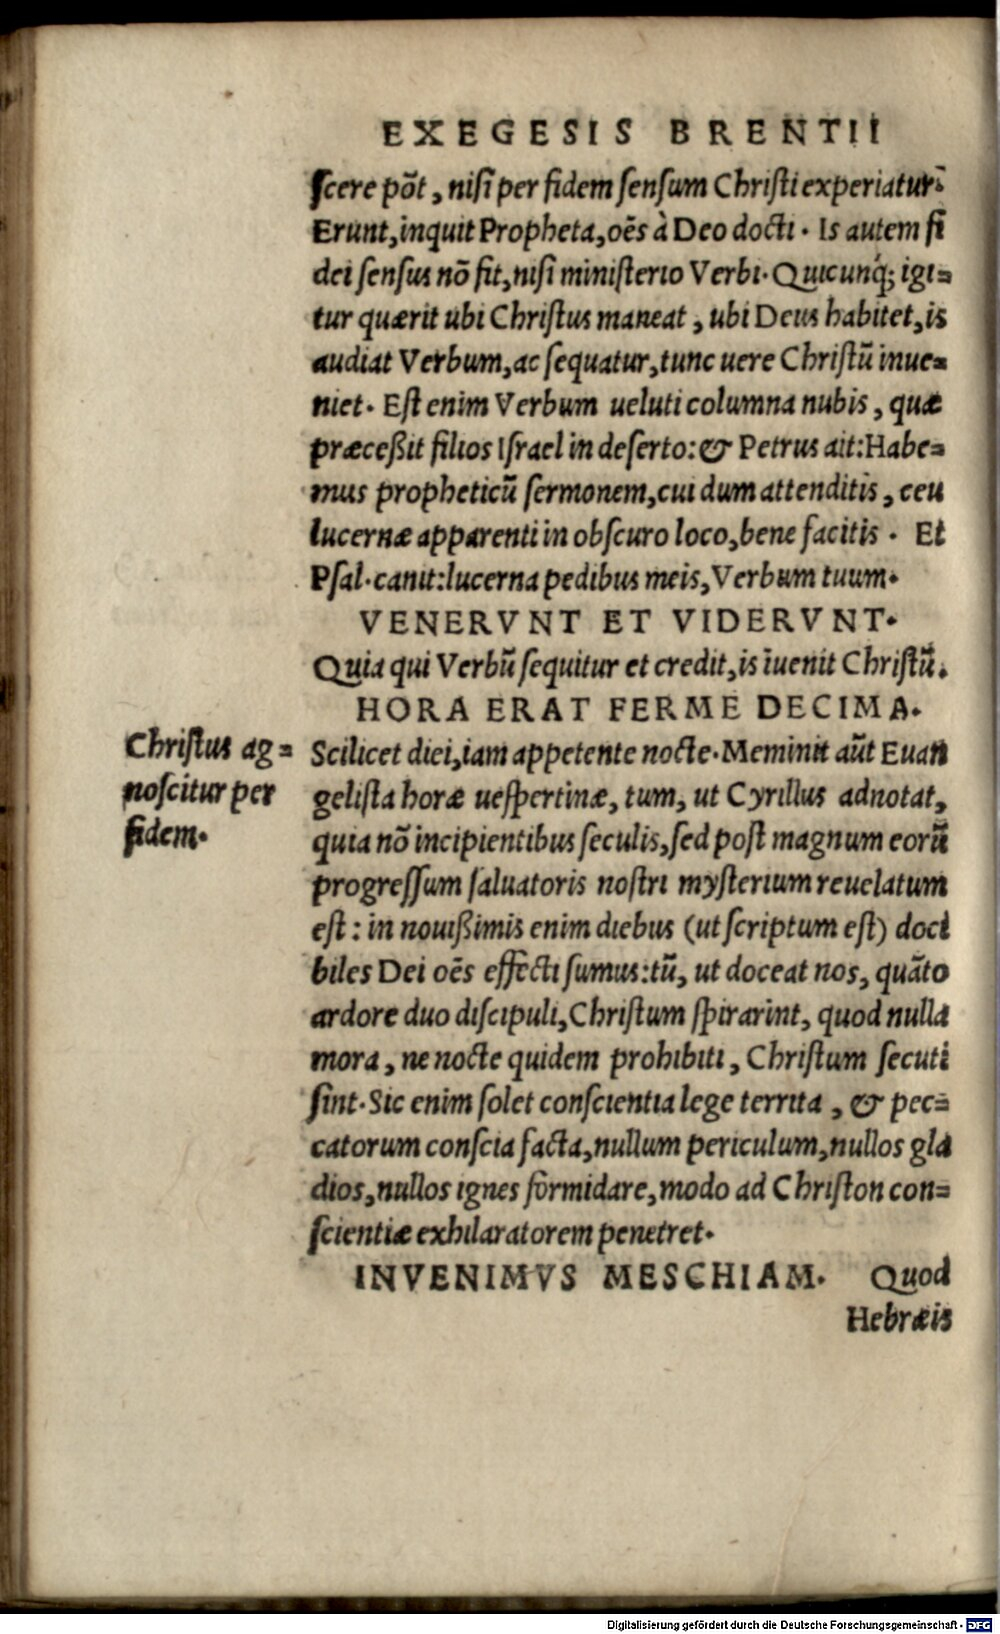 EXEGESIS BRENTII
scere põt, nisi per fidem sensum Christi experiatur.
Erunt, inquit Propheta, oẽs à Deo docti. Is autem fi
dei sensus nõ fit, nisi ministerio Verbi. Quicunq́; igi=
tur quærit ubi Christus maneat, ubi Deus habitet, is
audiat Verbum, ac sequatur, tunc uere Christũ inue=
niet. Est enim Verbum ueluti columna nubis, quæ
præceßit filios Israel in deserto: & Petrus ait: Habe=
mus propheticũ sermonem, cui dum attenditis, ceu
lucernæ apparenti in obscuro loco, bene facitis. Et
Psal. canit: lucerna pedibus meis, Verbum tuum.
VENERVNT ET VIDERVNT.
Quia qui Verbũ sequitur et credit, is ĩuenit Christũ.
HORA ERAT FERME DECIMA.
Christus ag=
noscitur per
fidem.
Scilicet diei, iam appetente nocte. Meminit aũt Euan
gelista horæ uespertinæ, tum, ut Cyrillus adnotat,
quia nõ incipientibus seculis, sed post magnum eorũ
progressum saluatoris nostri mysterium reuelatum
est: in nouißimis enim diebus (ut scriptum est) doci
biles Dei oẽs effecti sumus: tũ, ut doceat nos, quãto
ardore duo discipuli, Christum spirarint, quod nulla
mora, ne nocte quidem prohibiti, Christum secuti
sint. Sic enim solet conscientia lege territa, & pec=
catorum conscia facta, nullum periculum, nullos gla
dios, nullos ignes formidare, modo ad Christon con=
scientiæ exhilaratorem penetret.
INVENIMVS MESCHIAM. Quod
Hebræis
Digitalisierung gefördert durch die Deutsche Forschungsgemeinschaft - DFG